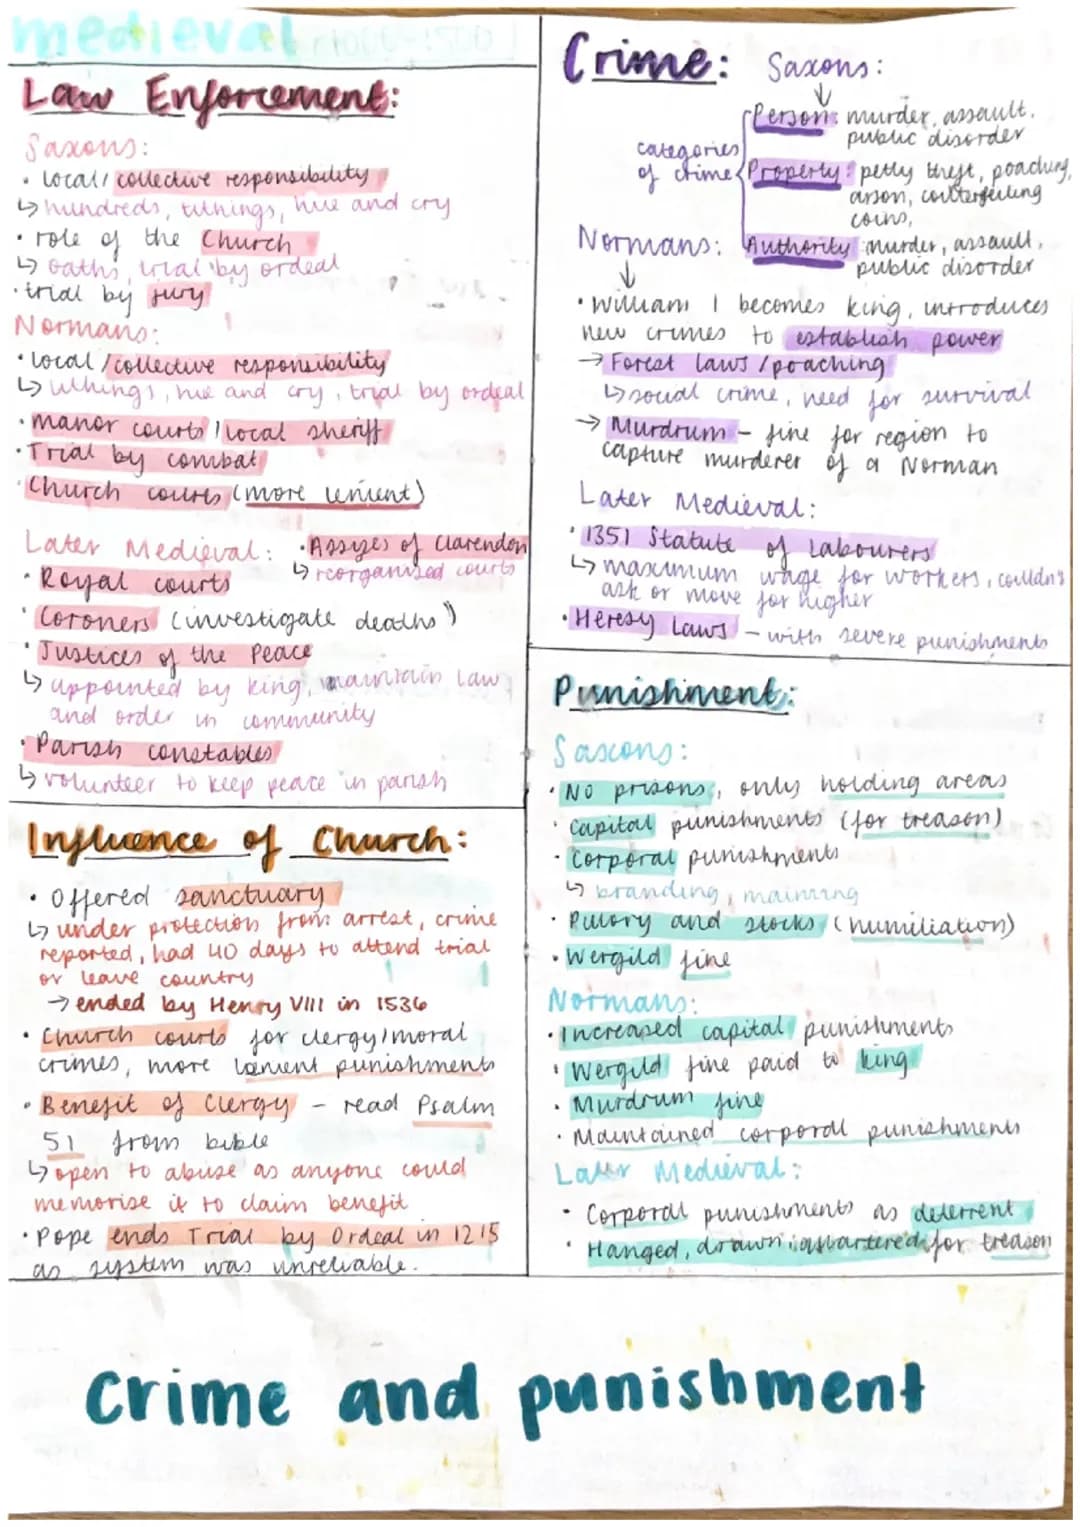 medieval (1000-1500)
Law Enforcement:
Saxons:
• local/collective responsibility
↳ hundreds, tithings, hue and cry
• role of the Church
↳ oaths, trial by ordeal
• trial by jury
Normans:
• local/collective responsibility
↳ tithings, hue and cry, trial by ordeal
• manor courts/local sheriff
• Trial by combat
• Church courts (more lenient)
Later Medieval:
• Assizes of Clarendon
↳ reorganised courts
• Royal courts
• Coroners (investigate deaths)
• Justices of the Peace
↳ appointed by king, maintain law
and order in community
• Parish constables
↳ volunteer to keep peace in parish
Influence of Church:
• Offered sanctuary
↳ under protection from arrest, crime
reported, had 40 days to attend trial
or leave country
→ ended by Henry VIII in 1536
• Church courts for clergy/moral
crimes, more lenient punishments
• Benefit of Clergy - read Psalm
51 from bible
↳ open to abuse as anyone could
memorise it to claim benefit
• Pope ends Trial by Ordeal in 1215
as system was unreliable.
Crime: Saxons:
↓
categories
of crime
Person: murder, assault,
public disorder
Property: petty theft, poaching,
arson, counterfeiting
coins,
Authority: murder, assault,
public disorder
Normans:
↓
• William I becomes king, introduces
new crimes to establish power
→ Forest laws/poaching
↳ social crime, need for survival
→ Murdrum - fine for region to
capture murderer of a Norman
Later Medieval:
• 1351 Statute of Labourers
↳ maximum wage for workers, couldn't
ask or move for higher
• Heresy Laws - with severe punishments
Punishment:
Saxons:
• No prisons, only holding areas
• Capital punishments (for treason)
• Corporal punishments
↳ branding, maiming
• Pillory and stocks (humiliation)
• Wergild fine
Normans:
• Increased capital punishments
• Wergild fine paid to king
• Murdrum fine
• Maintained corporal punishments
Later Medieval:
• Corporal punishments as deterrent
• Hanged, drawn, quartered for treason
crime and punishment